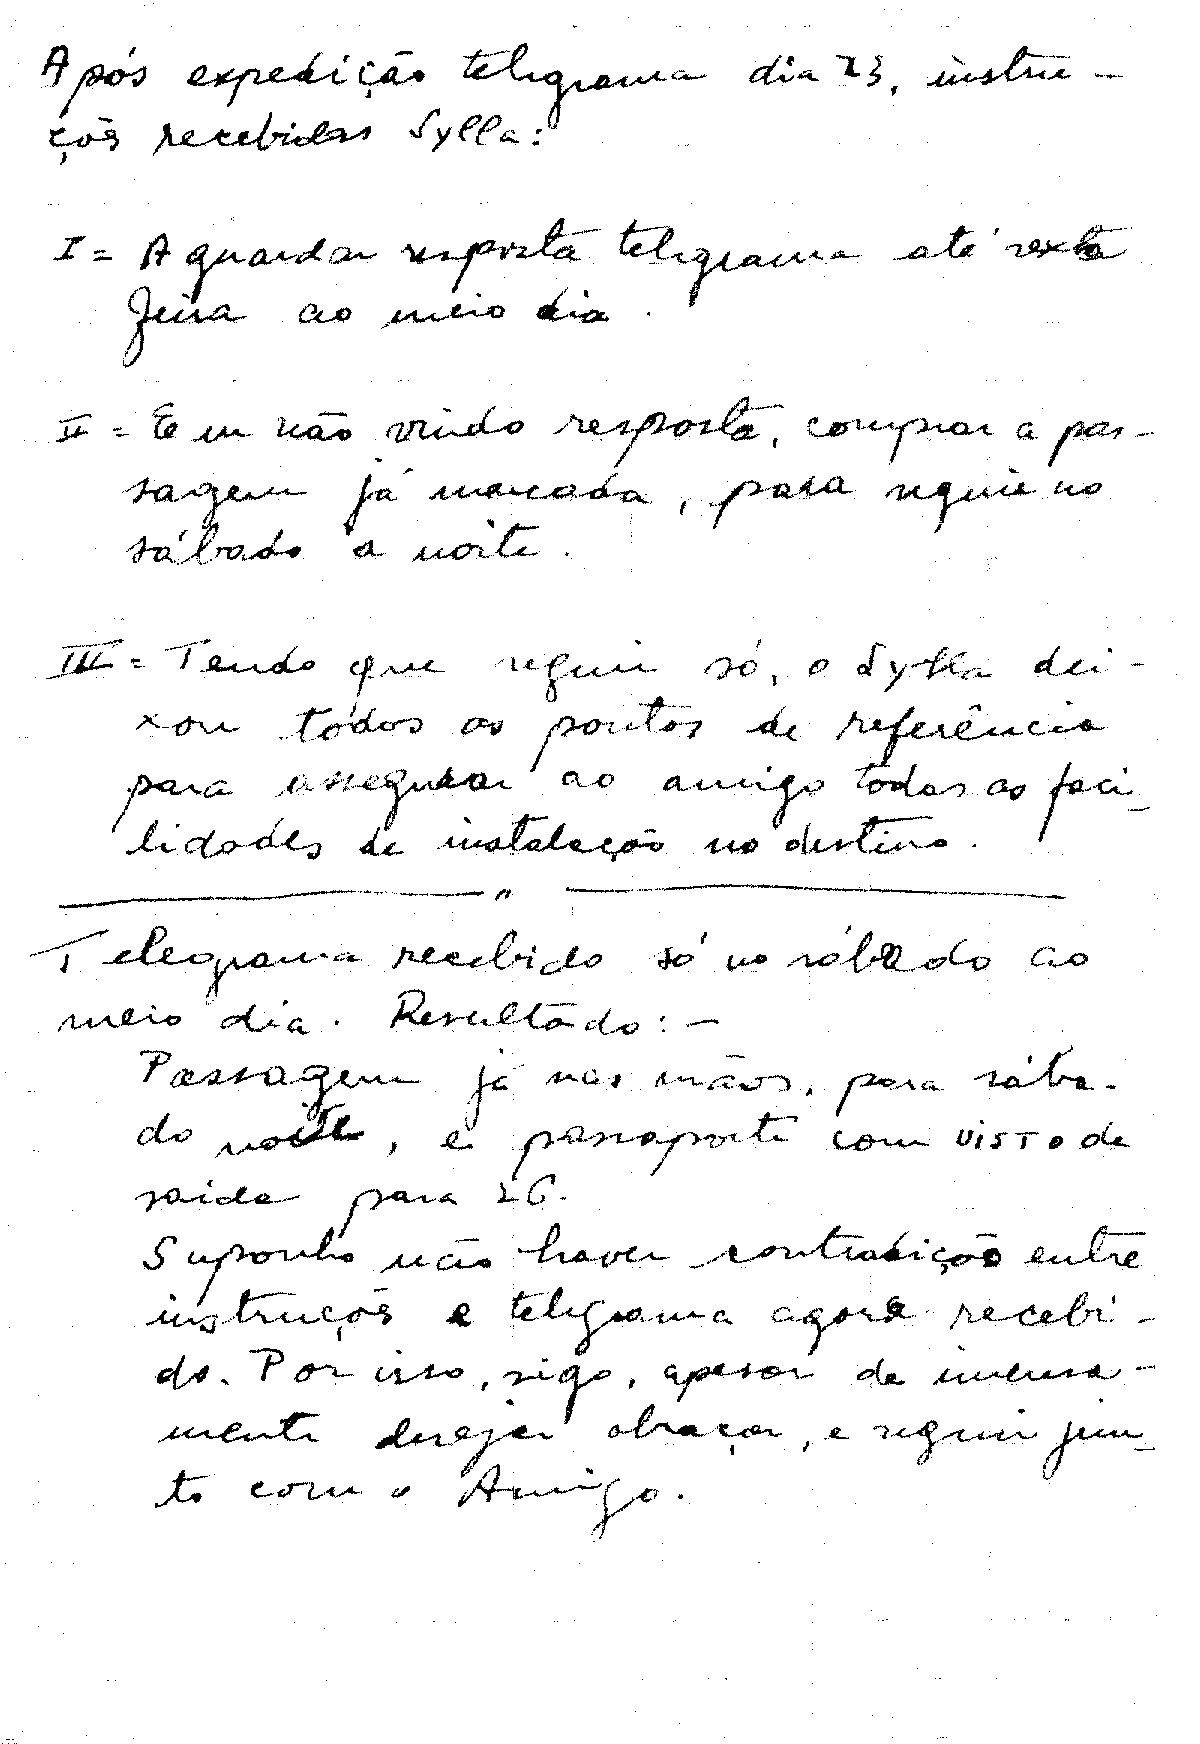 Após expedição telegrama dia 23, instru-
ções recebidas Sylla:
I = Aguardar resposta telegrama até sexta
feira ao meio dia.
II = Em não vindo resposta, comprar a pas-
sagem já marcada, para seguir no
sábado a noite.
III = Tendo que seguir só, o Sylla dei-
xou todos os pontos de referência
para assegurar ao amigo todas as faci-
lidades de instalação no destino.
"
Telegrama recebido só no sábado ao
meio dia. Resultado:-
Passagem já nas mãos, para sába-
do noite, e passaporte com VISTO de
saida para 26.
Suponho não haver contradição entre
instruções e telegrama agora recebi-
do. Por isso, sigo, apesar de imensa-
mente desejar abraçar, e seguir jun-
to com o Amigo.